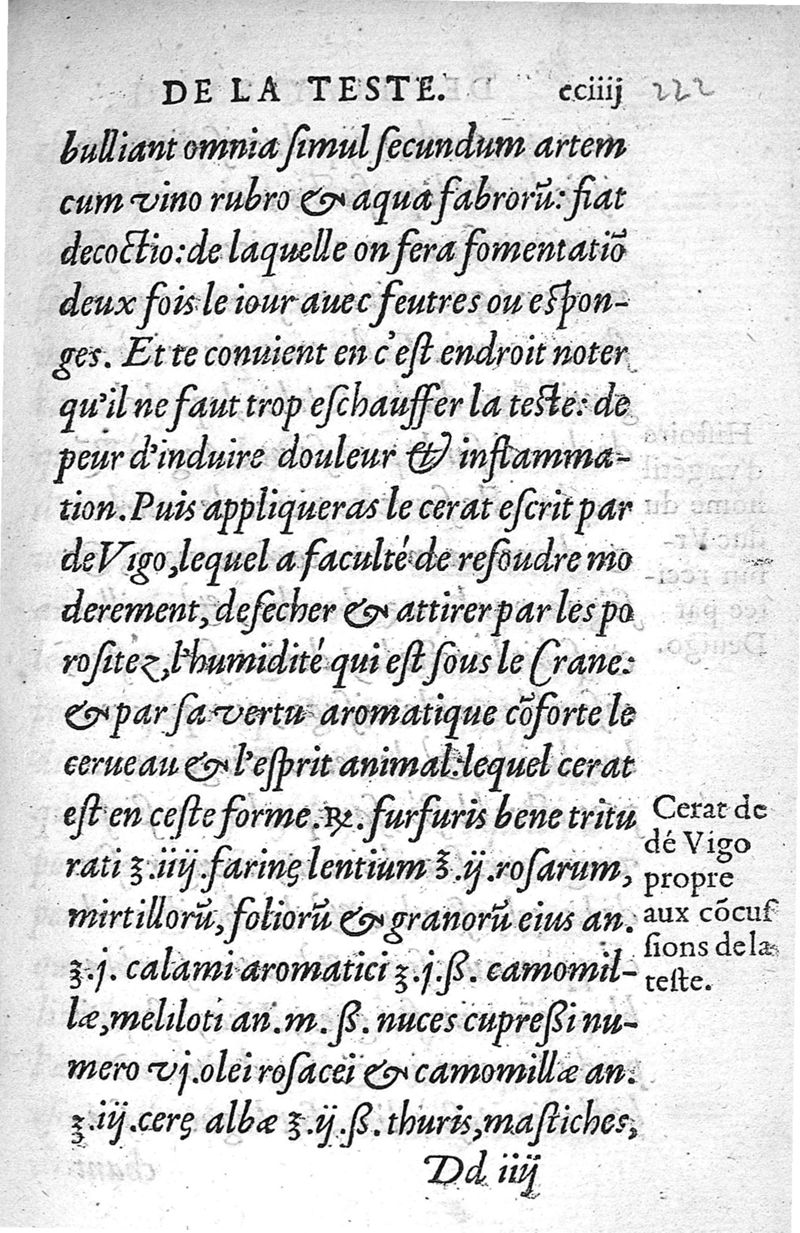 DE LA TESTE. cciiij 222
bulliant omnia ſimul ſecundum artem
cum vino rubro & aqua fabrorũ: fiat
decoctio: de laquelle on fera fomentatiõ
deux fois le iour auec feutres ou eſpon-
ges. Et te conuient en c'eſt endroit noter
qu'il ne faut trop eſchauffer la teſte: de
peur d'induire douleur & inflamma-
tion. Puis appliqueras le cerat eſcrit par
de Vigo, lequel a faculté de reſoudre mo
derement, deſecher & attirer par les po
roſitez, l'humidité qui eſt ſous le Crane:
& par ſa vertu aromatique cõforte le
cerueau & l'eſprit animal: lequel cerat
eſt en ceſte forme. ℞. furfuris bene tritu
rati ʒ.iiij. farinę lentium ℥.ij. roſarum,
mirtillorũ, foliorũ & granorũ eius an.
ʒ.j. calami aromatici ʒ.j.ß. camomil-
læ, meliloti an. m. ß. nuces cupreßi nu-
mero vj. olei roſacei & camomillæ an.
ʒ.iij. cerę albæ ʒ.ij.ß. thuris, maſtiches,
Dd iiij
Cerat de
dé Vigo
propre
aux cõcuſ
ſions de la
teſte.